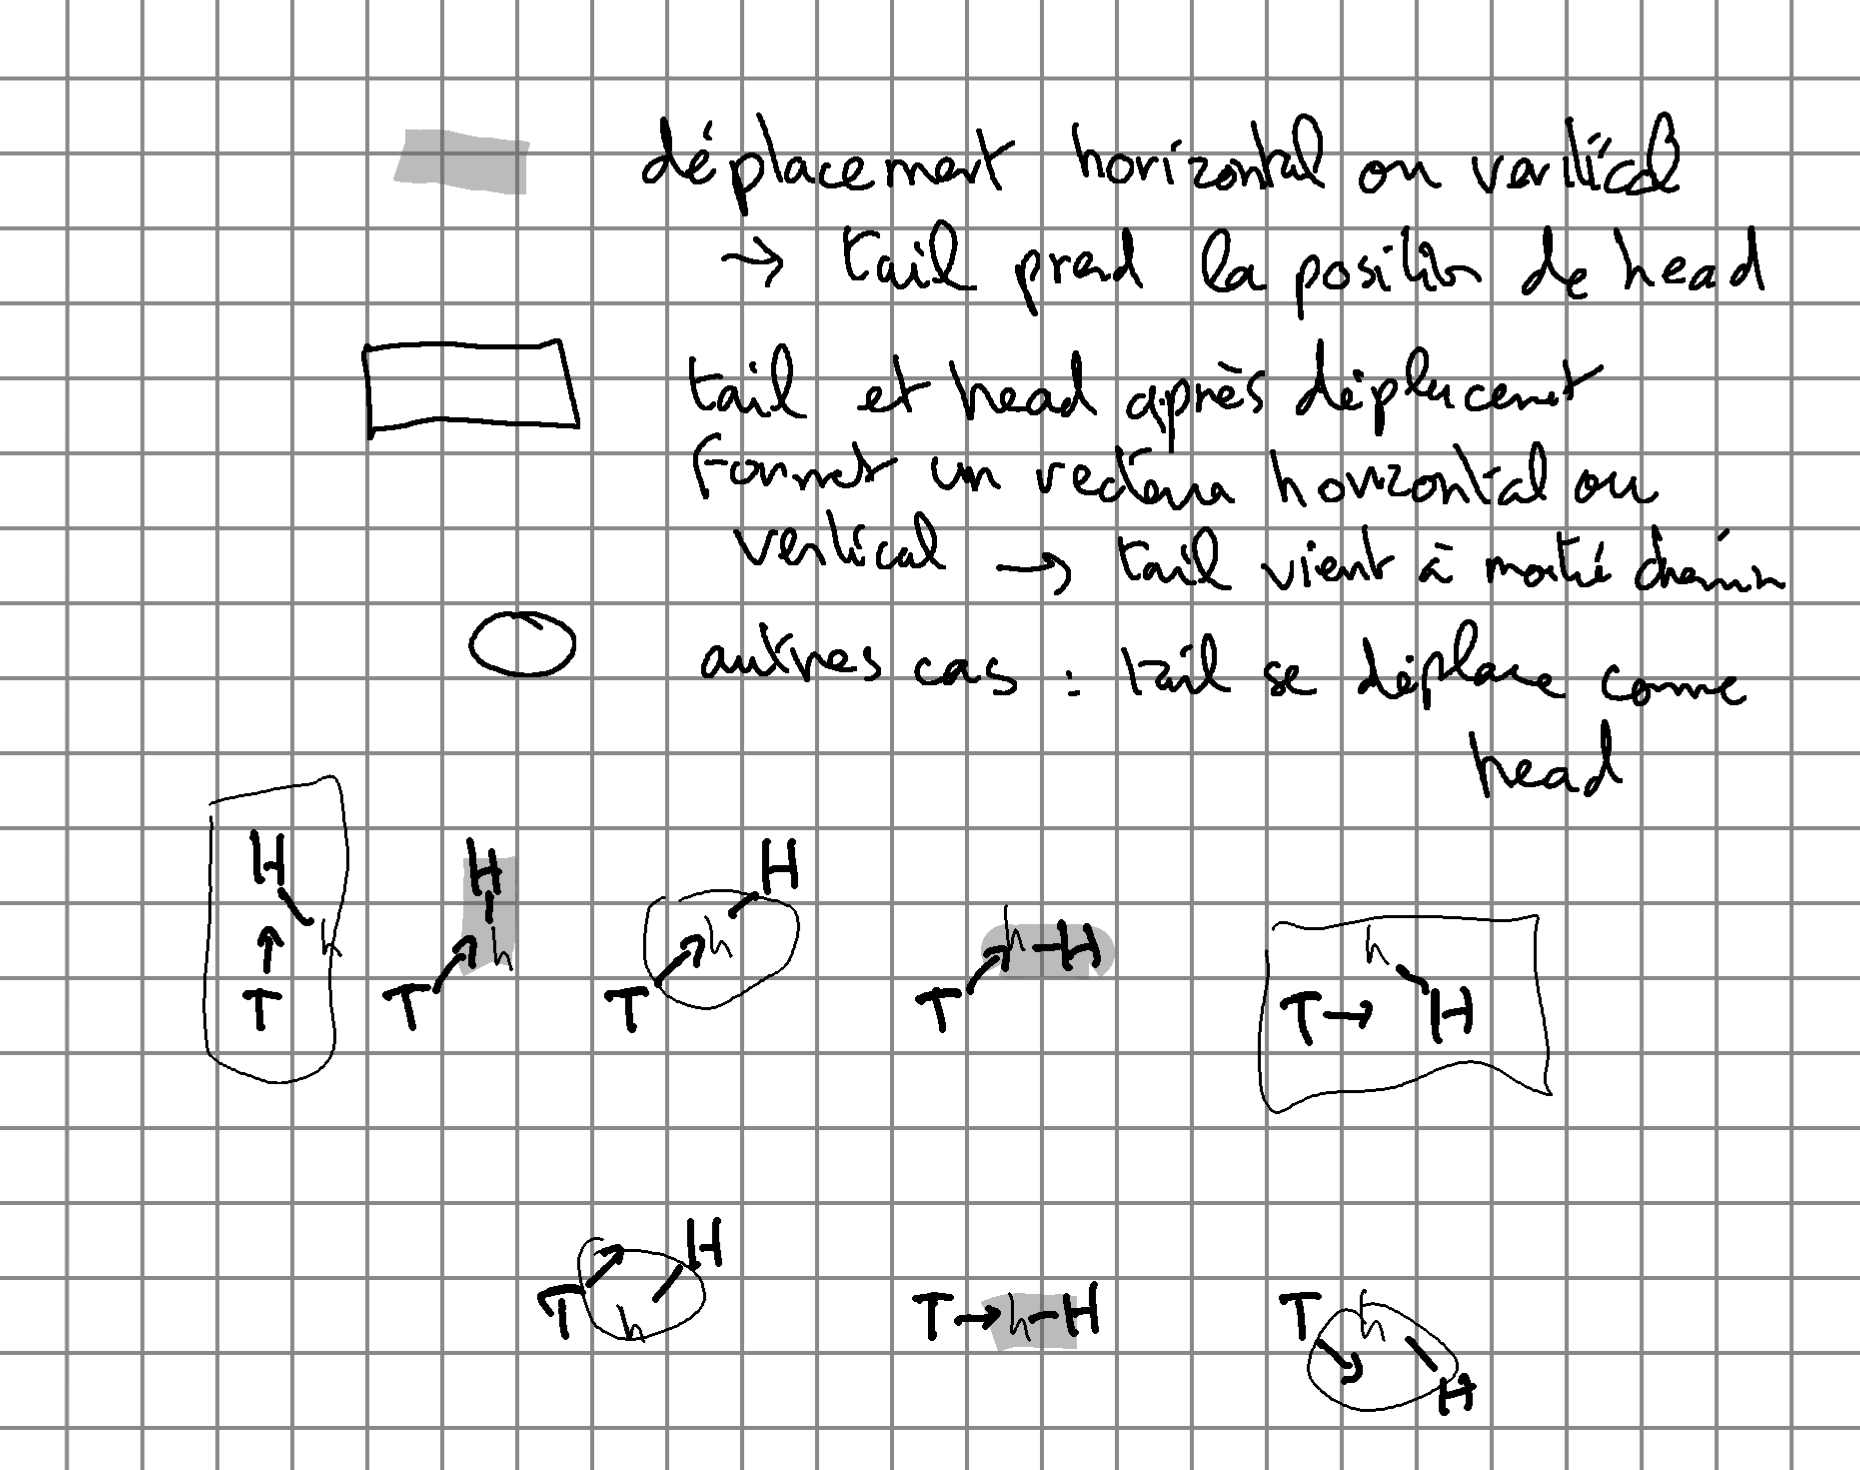 déplacement horizontal ou vertical
→ tail prend la position de head
tail et head après déplacement
forment un vecteur horizontal ou
vertical → tail vient à moitié chemin
autres cas : tail se déplace comme
head
H H H
h h h h - H h
T T T T T → H
H
T h T → h - H T h
H